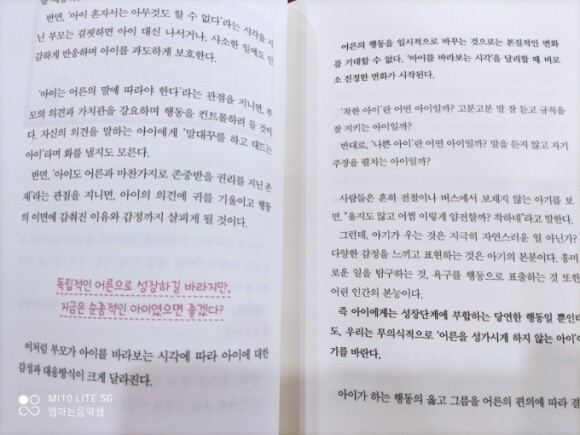 반면, '아이 혼자서는 아무것도 할 수 없다'라는 시각을 지
닌 부모는 걸핏하면 아이 대신 나서거나, 사소한 일에도 민
감하게 반응하며 아이를 과도하게 보호한다.
'아이는 어른의 말에 따라야 한다'라는 관점을 지니면, 부
모의 의견과 가치관을 강요하며 행동을 컨트롤하려 들 것이
다. 자신의 의견을 말하는 아이에게 '말대꾸를 하고 대드는
아이'라며 화를 낼지도 모른다.
반면, '아이도 어른과 마찬가지로 존중받을 권리를 지닌 존
재'라는 관점을 지니면, 아이의 의견에 귀를 기울이고 행동
의 이면에 감춰진 이유와 감정까지 살피게 될 것이다.
독립적인 어른으로 성장하길 바라지만,
지금은 순종적인 아이였으면 좋겠다?
이처럼 부모가 아이를 바라보는 시각에 따라 아이에 대한
감정과 대응방식이 크게 달라진다.
어른의 행동을 일시적으로 바꾸는 것으로는 본질적인 변화
를 기대할 수 없다. '아이를 바라보는 시각'을 달리할 때 비로
소 진정한 변화가 시작된다.
'착한 아이'란 어떤 아이일까? 고분고분 말 잘 듣고 규칙을
잘 지키는 아이일까?
반대로, '나쁜 아이'란 어떤 아이일까? 말을 듣지 않고 자기
주장을 펼치는 아이일까?
사람들은 흔히 전철이나 버스에서 보채지 않는 아기를 보
면, "울지도 않고 어쩜 이렇게 얌전할까? 착하네"라고 말한다.
그런데, 아기가 우는 것은 지극히 자연스러운 일 아닌가?
다양한 감정을 느끼고 표현하는 것은 아기의 본분이다. 흥미
로운 일을 탐구하는 것, 욕구를 행동으로 표출하는 것 또한
어린 인간의 본능이다.
즉 아이에게는 성장단계에 부합하는 당연한 행동일 뿐인데
도, 우리는 무의식적으로 '어른을 성가시게 하지 않는 아이'이
기를 바란다.
아이가 하는 행동의 옳고 그름을 어른의 편의에 따라 결
MI10 LITE 5G
엄마는음악샘